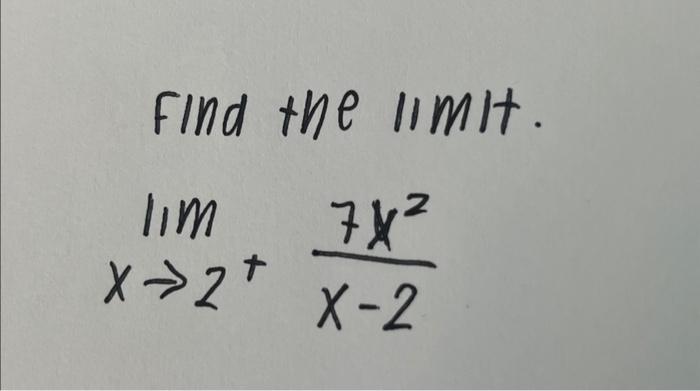 Find the limit.
lim 7x²
x→2⁺ x-2